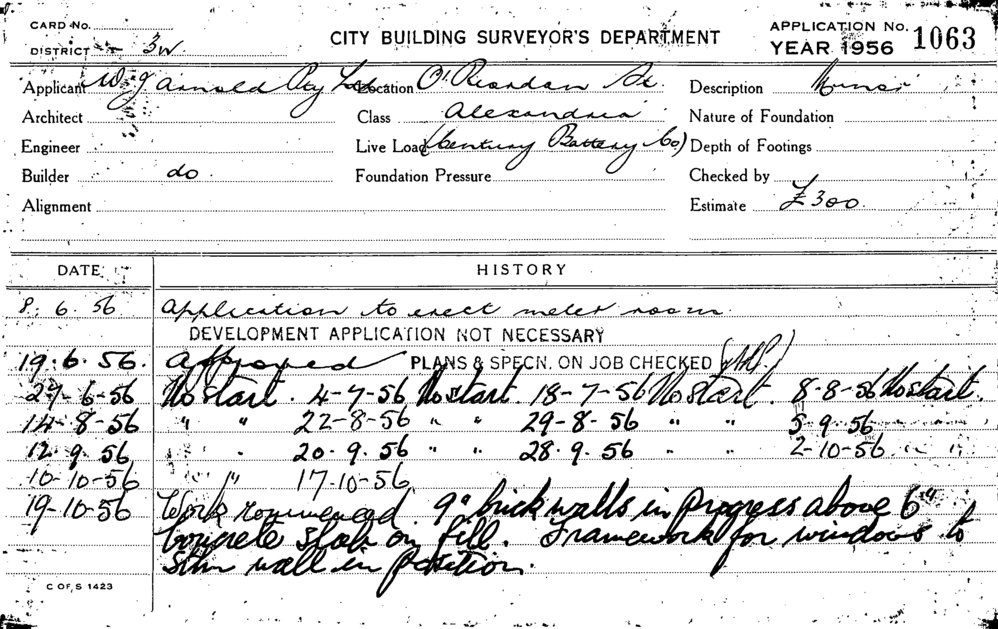 CARD No.
DISTRICT 3W
CITY BUILDING SURVEYOR'S DEPARTMENT
APPLICATION No. 1063
YEAR 1956
Applicant W J Arnold Pty Ltd Location O'Riordan St. Description
Architect Class Alexandria Nature of Foundation
Engineer Live Load (Century Battery Co) Depth of Footings
Builder do. Foundation Pressure Checked by
Alignment Estimate £300.
DATE HISTORY
8. 6. 56 Application to erect meter room
DEVELOPMENT APPLICATION NOT NECESSARY
19.6.56. Approved PLANS & SPECN. ON JOB CHECKED
27-6-56 No start. 4-7-56 No start. 18-7-56 No start. 8-8-56 No start.
14-8-56 " " 22-8-56 " " 29-8-56 " " 5-9-56 " "
12.9.56 " " 20.9.56 " " 28.9.56 " " 2-10-56 " "
10-10-56 " " 17-10-56
19-10-56 Work commenced. 9" brick walls in progress above 6"
concrete slab on fill. Framework for windows to
Sthn wall in position.
C OF S 1423